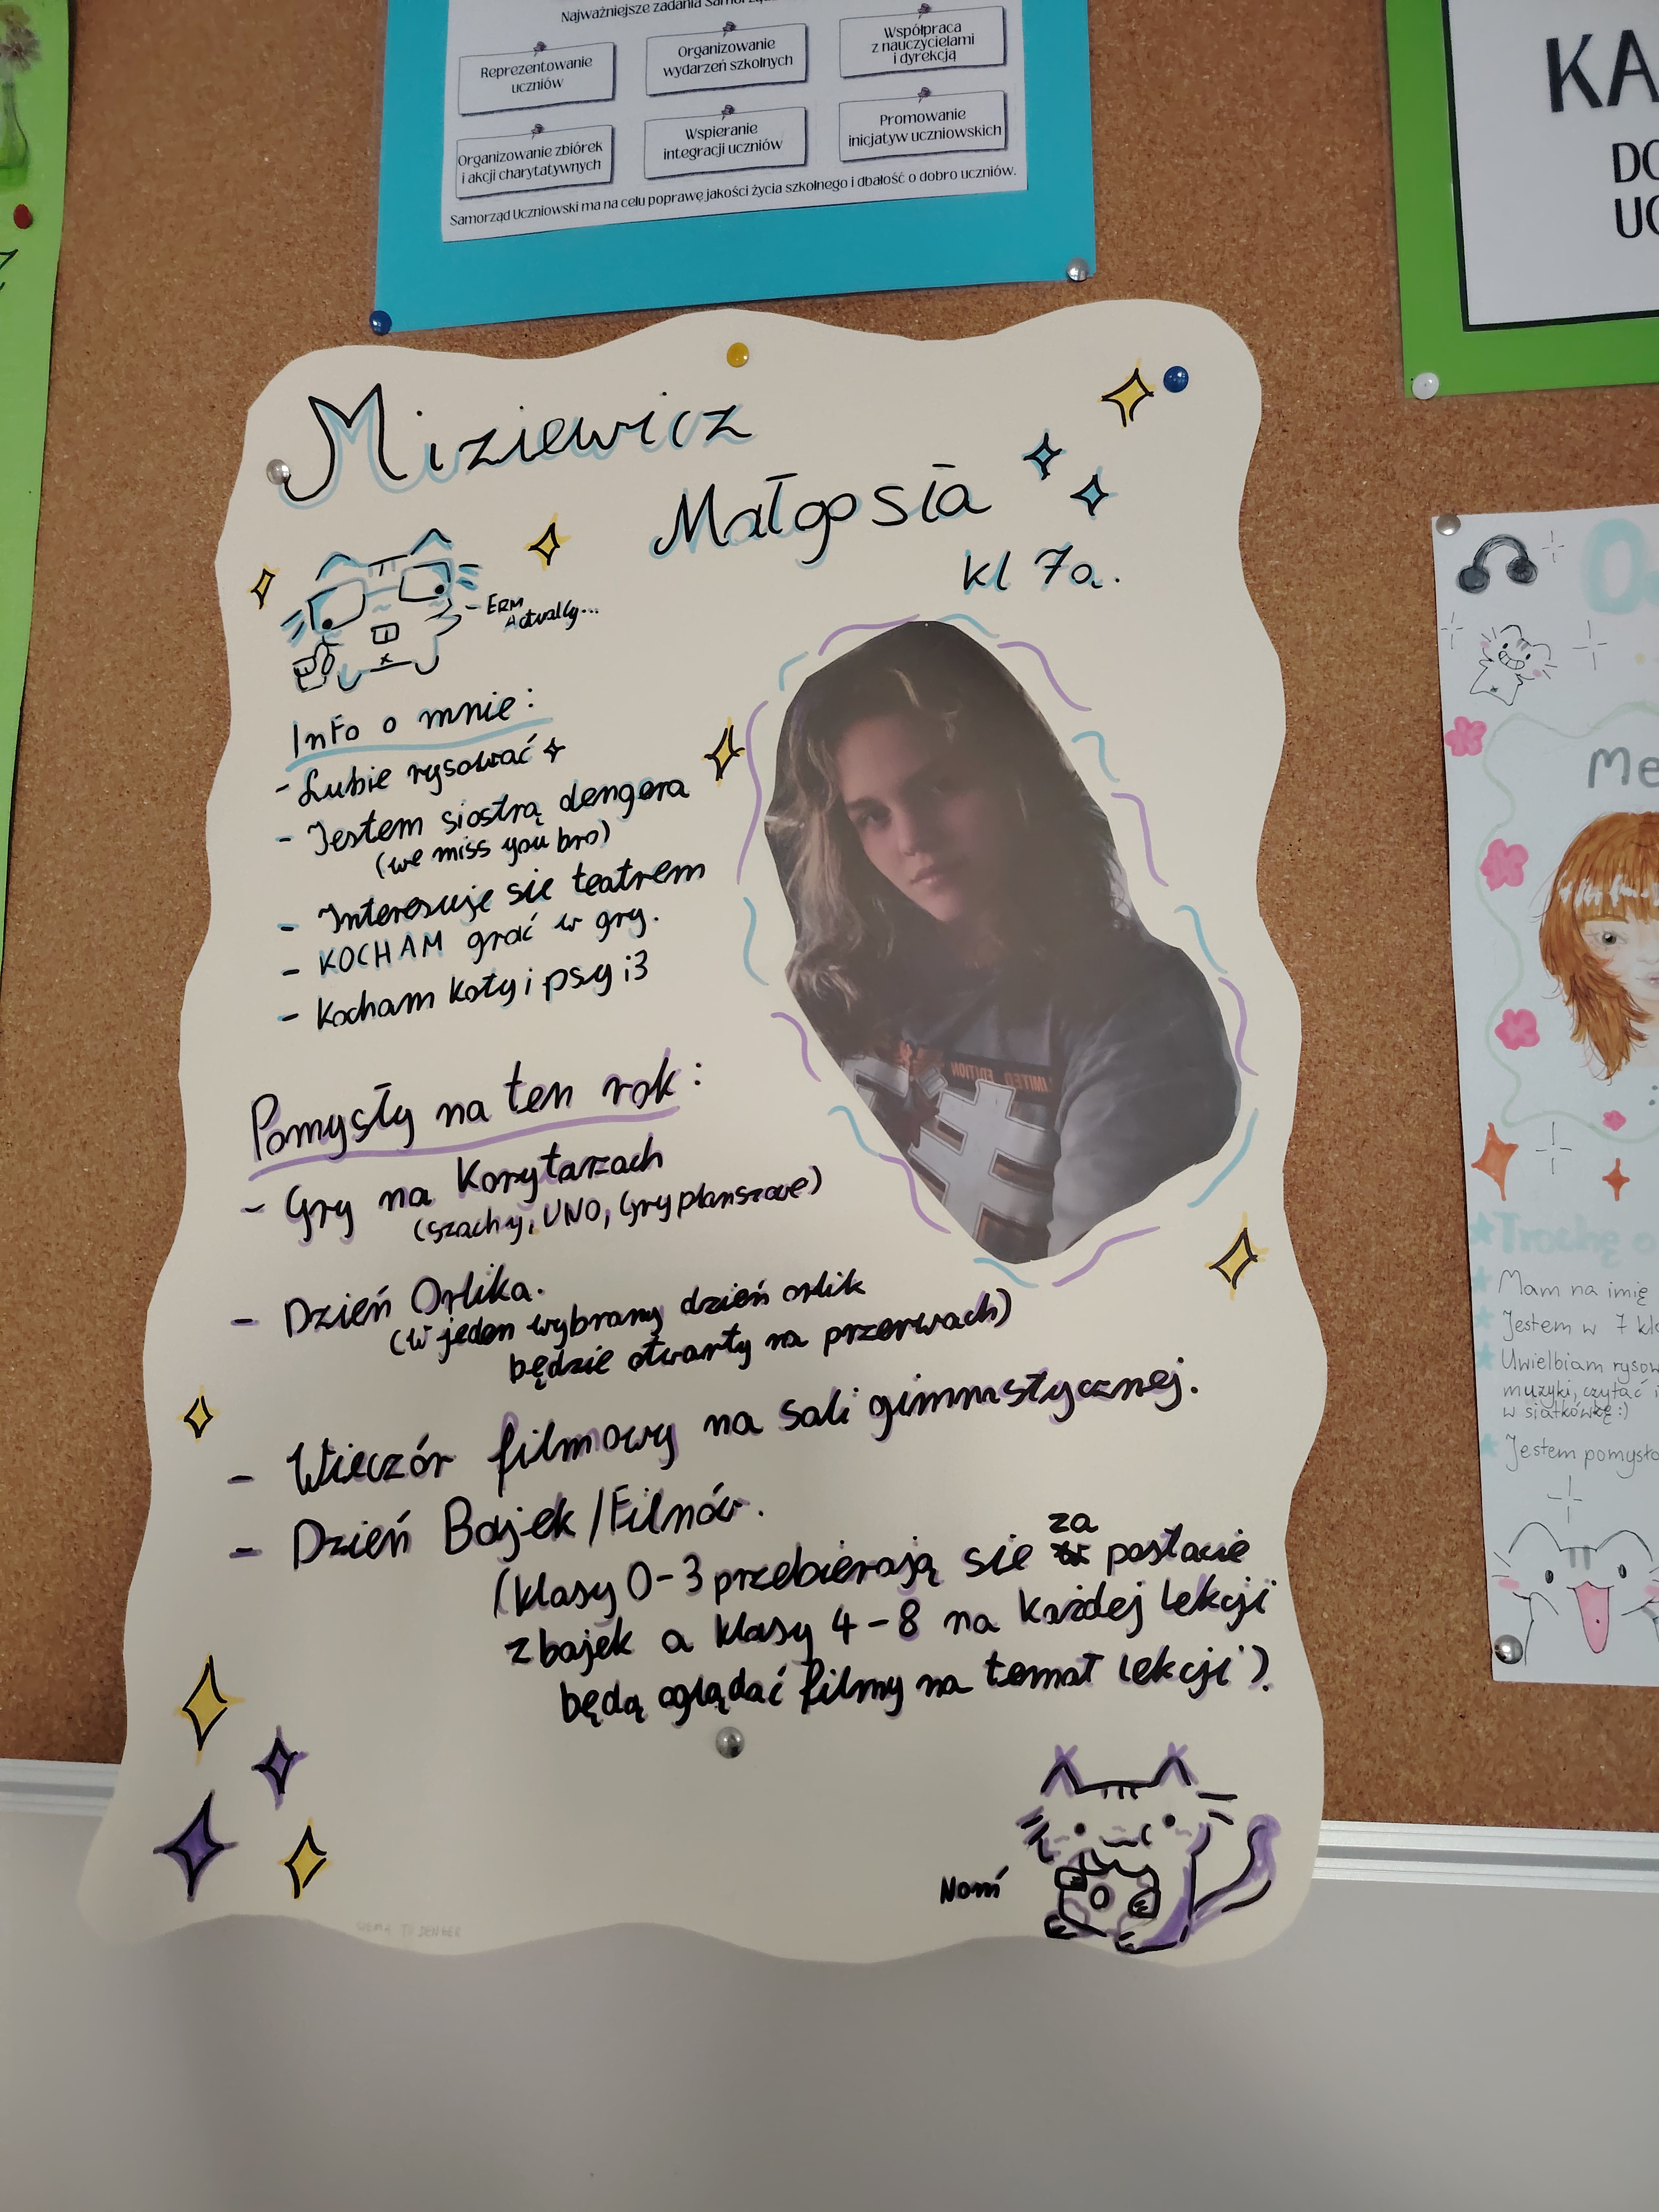 Najważniejsze zadania
Reprezentowanie
uczniów
Organizowanie
wydarzeń szkolnych
Współpraca
z nauczycielami
i dyrekcją
Organizowanie zbiórek
i akcji charytatywnych
Wspieranie
integracji uczniów
Promowanie
inicjatyw uczniowskich
Samorząd Uczniowski ma na celu poprawę jakości życia szkolnego i dbałość o dobro uczniów.
KA
DO
UC
Miziewicz
Małgosia
kl 7a.
- ERM
Actually...
Info o mnie:
- Lubie rysować
- Jestem siostrą dengera
(we miss you bro)
- Interesuje sie teatrem
- KOCHAM grać w gry.
- Kocham koty i psy i3
LIMITED EDITION
Pomysły na ten rok:
- Gry na Korytarzach
(szachy, UNO, Gry planszowe)
- Dzień Orlika.
(W jeden wybrany dzień orlik
będzie otwarty na przerwach)
- Wieczór filmowy na sali gimnastycznej.
- Dzień Bajek/Filmów.
(klasy 0-3 przebierają sie za postacie
z bajek a klasy 4-8 na każdej lekcji
będą oglądać filmy na temat lekcji).
SIEMA TU DENGER
Me
Trochę o
Mam na imię
Jestem w 7 kl
Uwielbiam rysow
muzyki, czytać i
w siatkówkę :)
Jestem pomysło